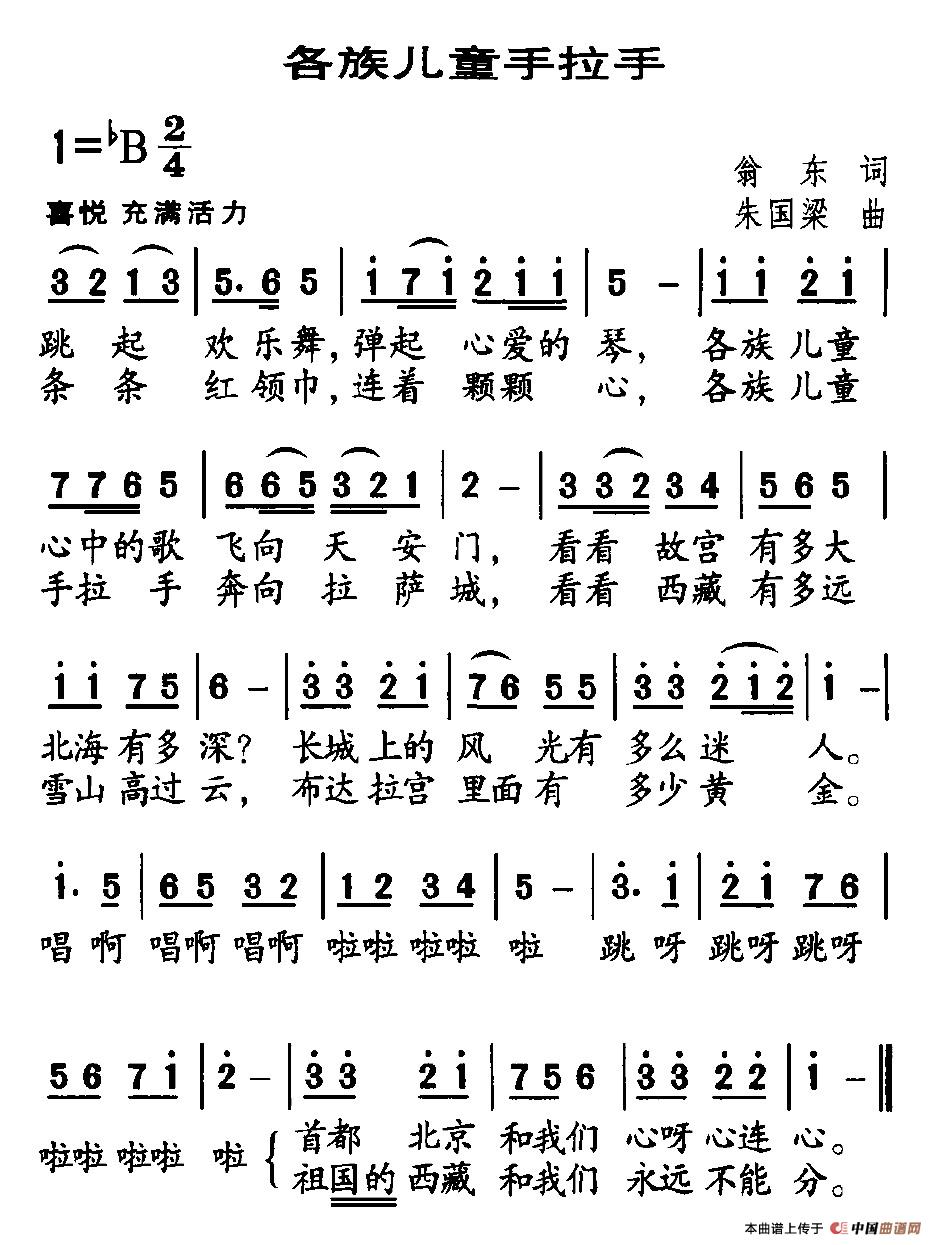 各族儿童手拉手
1=♭B 2/4
翁 东 词
喜悦 充满活力
朱国梁 曲
3 2 1 3 | 5. 6 5 | i 7 i 2̇ i i | 5 - | i i 2̇ i |
跳 起 欢 乐 舞, 弹起 心爱的 琴, 各族 儿童
条 条 红 领 巾, 连着 颗颗 心, 各族 儿童
7 7 6 5 | 6 6 5 3 2 1 | 2 - | 3 3 2 3 4 | 5 6 5 |
心中的歌 飞向 天 安 门, 看看 故宫 有多大
手拉 手 奔向 拉 萨 城, 看看 西藏 有多远
i i 7 5 | 6 - | 3̇ 3̇ 2̇ i | 7 6 5 5 | 3̇ 3̇ 2̇ i 2̇ | i - |
北海有多 深? 长城上的 风 光有 多么迷 人。
雪山高过云, 布达拉宫 里面有 多少黄 金。
i. 5 | 6 5 3 2 | 1 2 3 4 | 5 - | 3̇. i | 2̇ i 7 6 |
唱 啊 唱啊唱啊 啦啦 啦啦 啦 跳 呀 跳呀跳呀
5 6 7 i | 2̇ - | 3̇ 3̇ 2̇ i | 7 5 6 | 3̇ 3̇ 2̇ 2̇ | i - ‖
啦啦 啦啦 啦 { 首都 北京 和我们 心呀心连 心。
祖国的西藏 和我们 永远不能 分。
本曲谱上传于 中国曲谱网